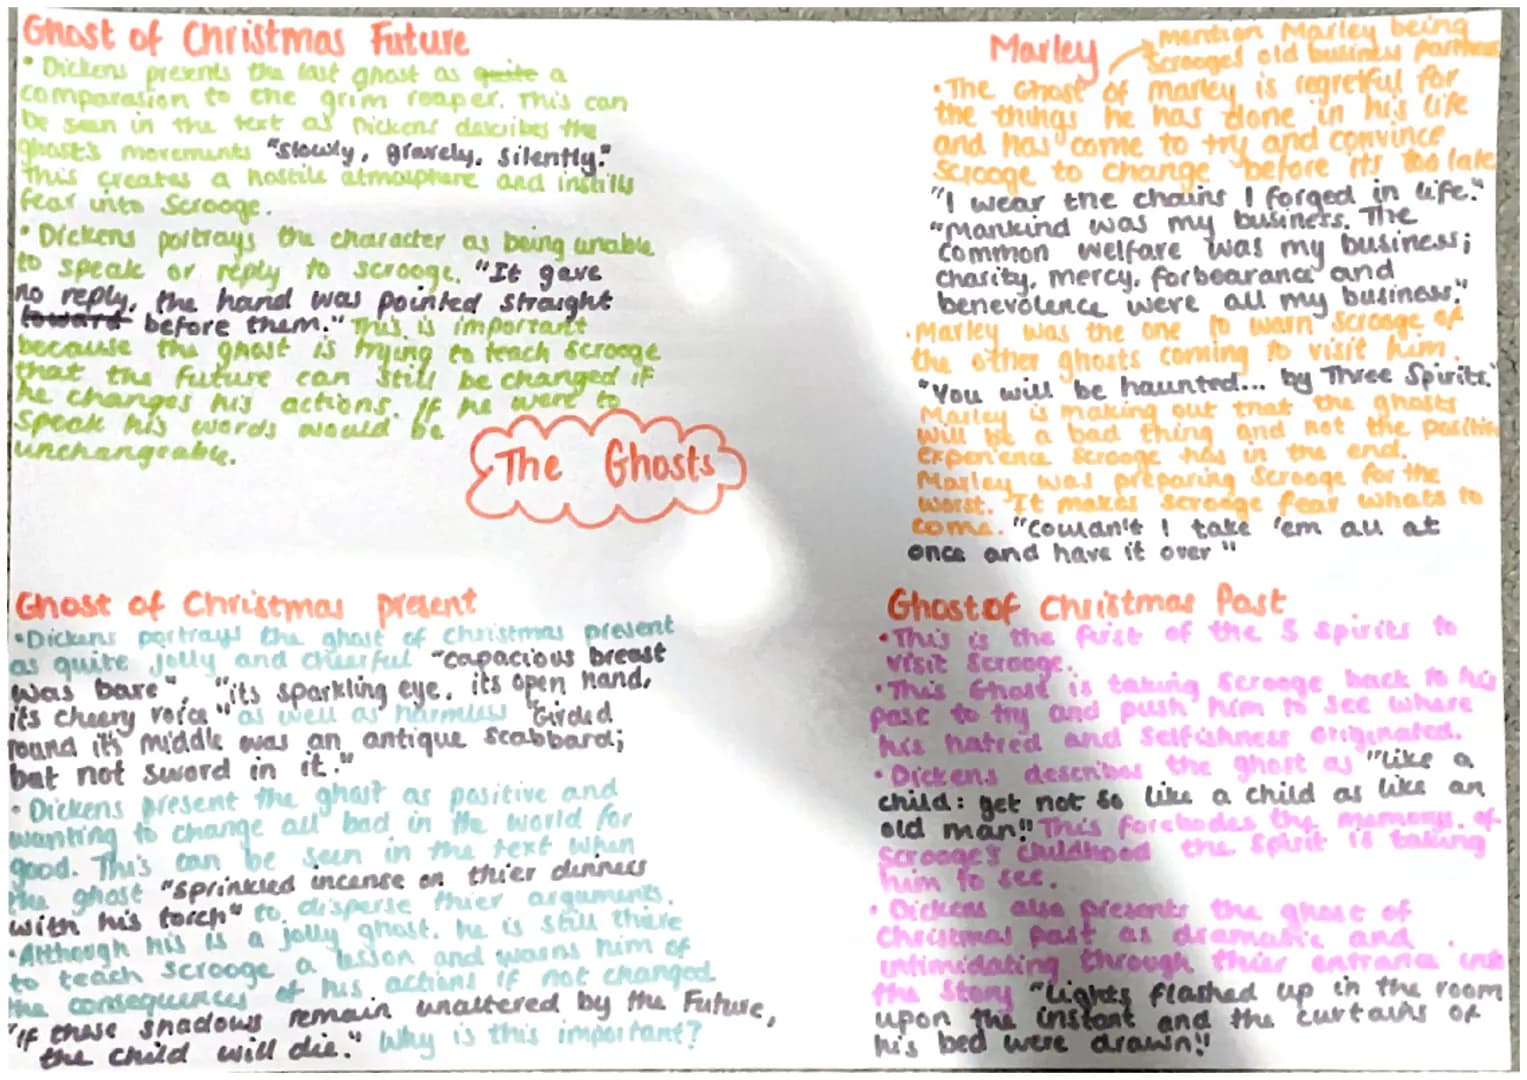 Ghost of Christmas Future
• Dickens presents the last ghost as quite a
comparasion to the grim reaper. This can
be seen in the text as Dickens describes the
ghost's movements "slowly, gravely, silently."
This creates a hostile atmosphere and instills
fear into Scrooge.
• Dickens portrays the character as being unable
to speak or reply to scrooge. "It gave
no reply, the hand was pointed straight
toward before them." This is important
because the ghost is trying to teach Scrooge
that the future can still be changed if
he changes his actions. If he were to
speak his words would be
unchangeable.
The Ghosts
Marley
mention Marley being
Scrooges old business partner
• The Ghost of marley is regretful for
the things he has done in his life
and has come to try and convince
Scrooge to change before its too late
"I wear the chains I forged in life."
"Mankind was my business. The
common welfare was my business;
charity, mercy, forbearance and
benevolence were all my business."
• Marley was the one to warn Scrooge of
the other ghosts coming to visit him.
"You will be haunted... by Three Spirits."
Marley is making out that the ghosts
will be a bad thing and not the positive
experience Scrooge has in the end.
Marley was preparing Scrooge for the
worst. It makes scrooge fear whats to
come. "Couldn't I take 'em all at
once and have it over"
Ghost of Christmas present
• Dickens portrays the ghost of Christmas present
as quite jolly and cheerful "capacious breast
was bare", "its sparkling eye, its open hand,
its cheery voice" as well as harmless "Girded
round its middle was an antique scabbard;
but not sword in it."
• Dickens present the ghost as positive and
wanting to change all bad in the world for
good. This can be seen in the text when
the ghost "sprinkled incense on thier dinners
with his torch" to disperse thier arguments.
• Although his is a jolly ghost, he is still there
to teach scrooge a lesson and warns him of
the consequences of his actions if not changed.
"if these shadows remain unaltered by the Future,
the child will die." Why is this important?
Ghost of Christmas Past
• This is the first of the 3 spirits to
visit Scrooge.
• This Ghost is taking Scrooge back to his
past to try and push him to see where
his hatred and selfishness originated.
• Dickens describes the ghost as "like a
child: yet not so like a child as like an
old man." This forebodes the memory of
Scrooge's childhood the spirit is taking
him to see.
• Dickens also presents the ghost of
Christmas past as dramatic and
intimidating through thier entrance into
the story "Lights flashed up in the room
upon the instant and the curtains of
his bed were drawn."